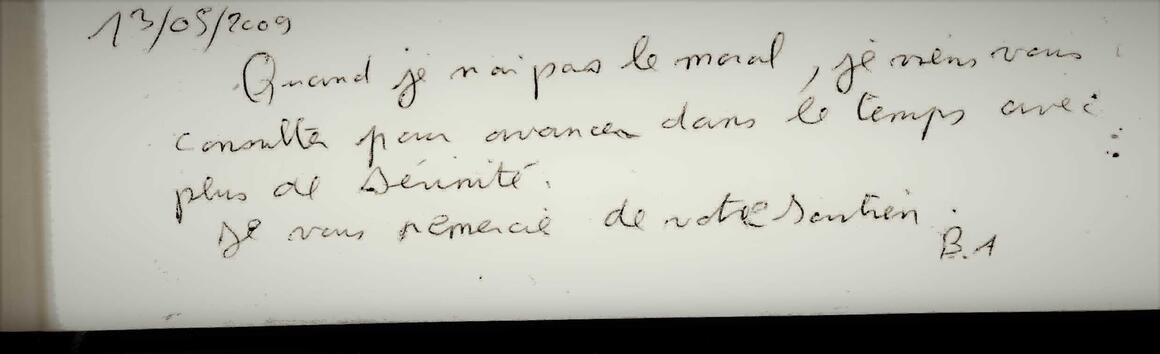 13/05/2009
Quand je n'ai pas le moral, je viens vous
consulter pour avancer dans le temps avec
plus de sérénité.
Je vous remercie de votre soutien.
B.A